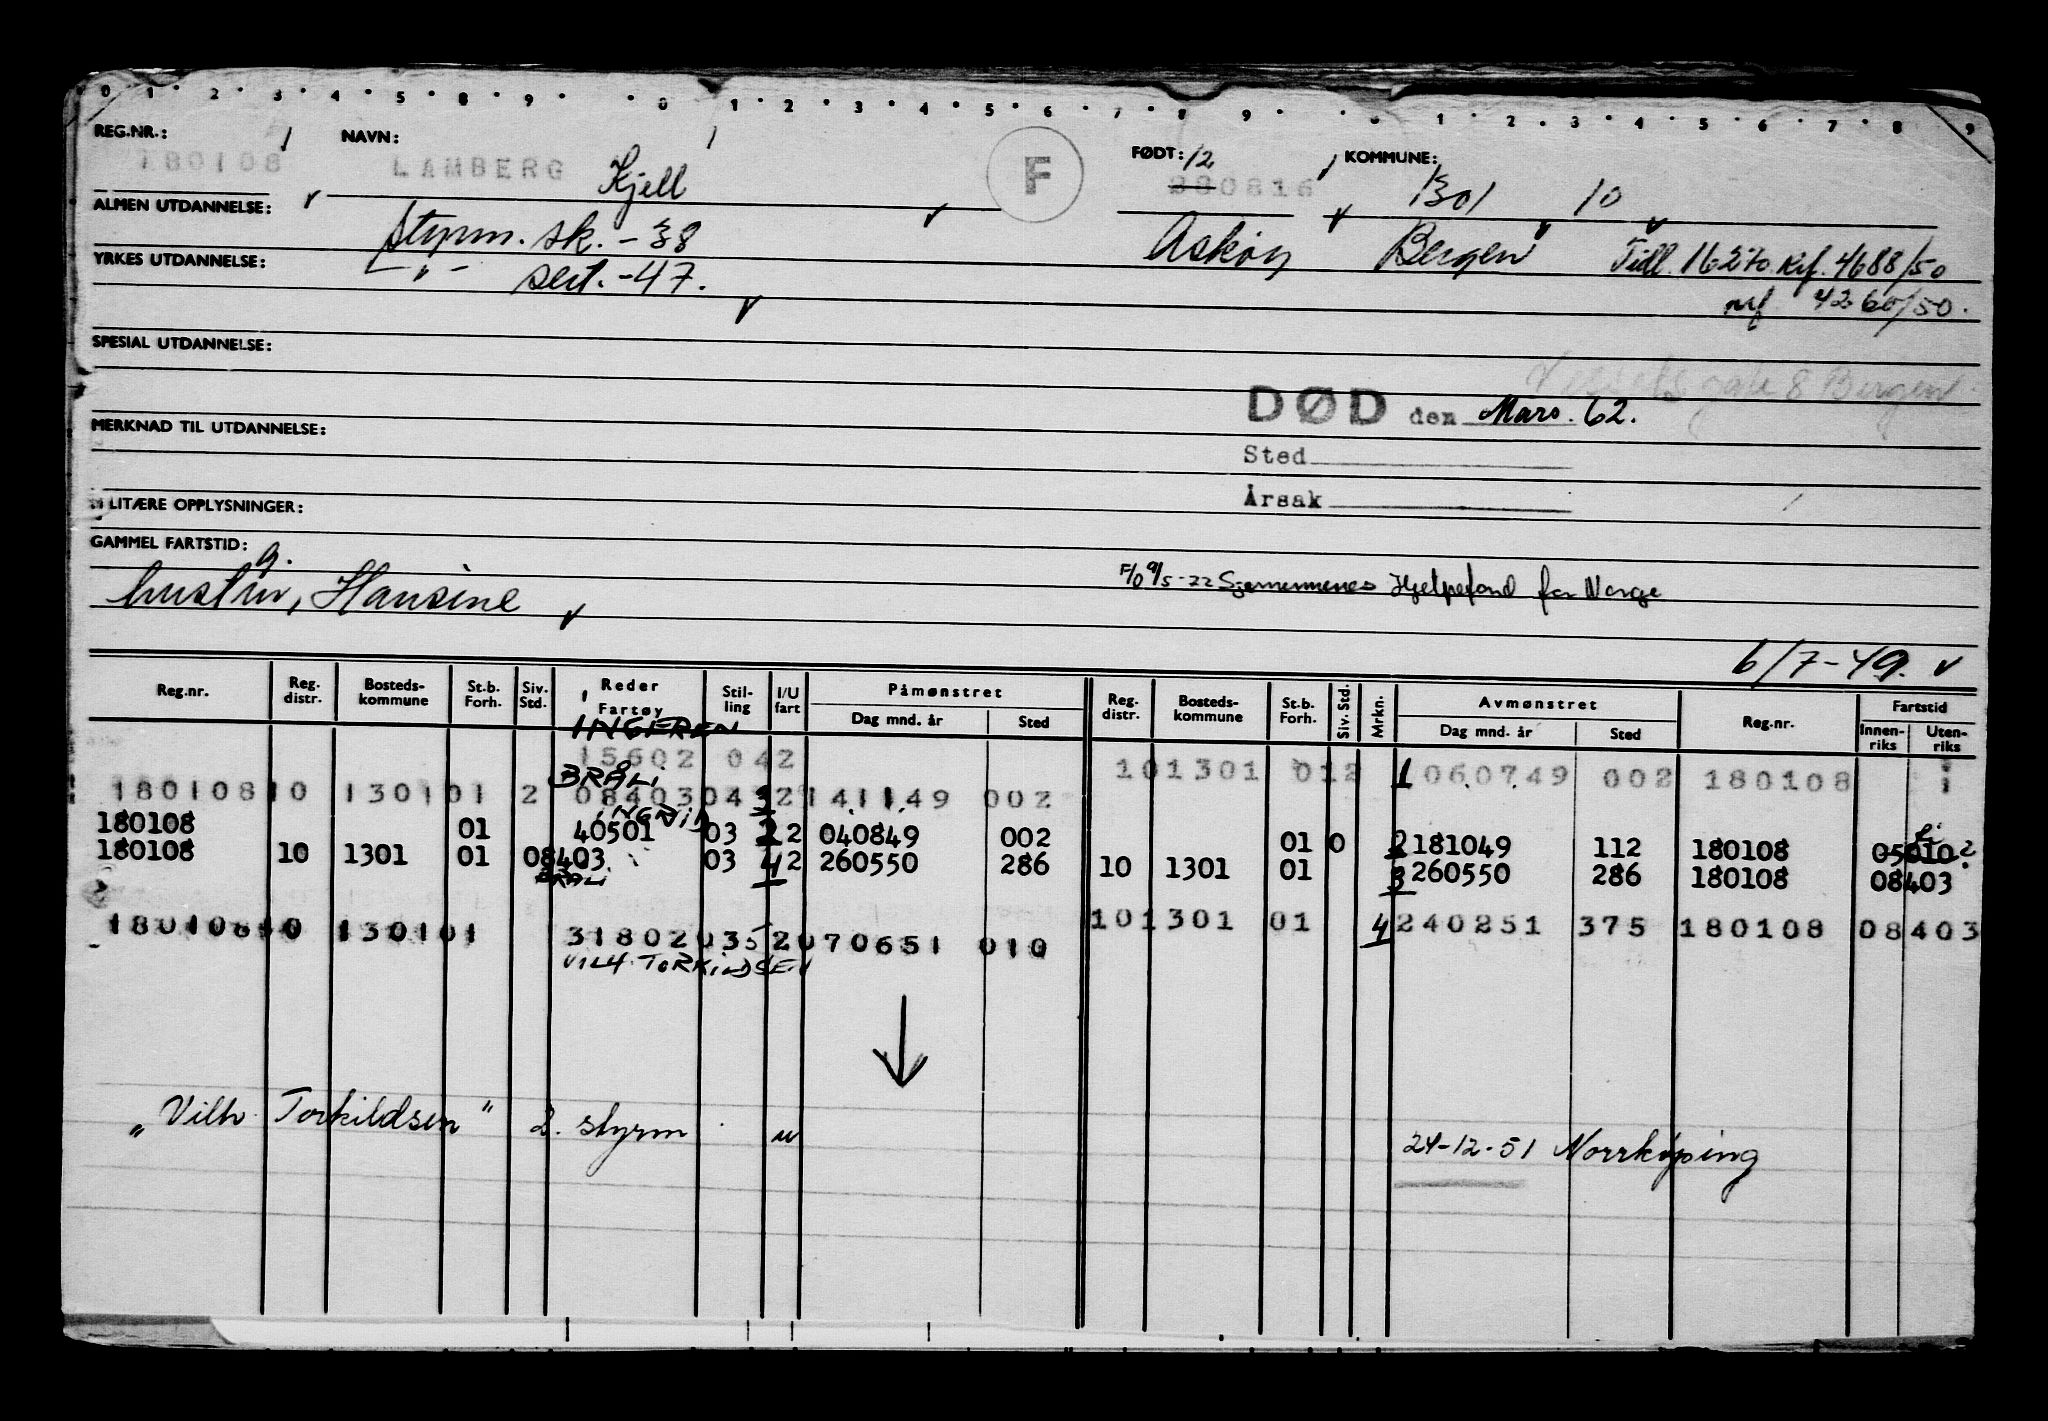 0 1 2 3 4 5 8 9 0 1 2 3 4 5 6 7 8 9 0 1 2 3 4 5 6 7 8 9
REG.NR.: NAVN: FØDT: 12 KOMMUNE:
180108 LAMBERG Kjell F 280816 1301 10
ALMEN UTDANNELSE: Styrm. sk. -38 Askøy Bergen Tidl. 16270 Krf. 4688/50
YRKES UTDANNELSE: - " - sert. -47. 4260/50.
SPESIAL UTDANNELSE:
gate 8 Bergen
DØD den Mars. 62.
MERKNAD TIL UTDANNELSE:
Sted
LITÆRE OPPLYSNINGER:
Årsak
GAMMEL FARTSTID:
g.
hustru, Hansine
F/O 9/5-22 Sjømennenes Hjelpefond for Norge
6/7-49.
Reg.nr. Reg. distr. Bosteds- kommune St.b. Forh. Siv. Std. Reder Fartøy Stil- ling I/U fart Påmønstret Dag mnd. år Sted Reg. distr. Bosteds- kommune St.b. Forh. Siv. Std. Mrkn. Avmønstret Dag mnd. år Sted Reg.nr. Fartstid Innen- riks Uten- riks
INGEREN
15602 042 101301 012 1 060749 002 180108
BRALI
18010810 130101 2 08403043 2 141149 002
INGRID
180108 01 40501 03 2 2 040849 002 01 0 2 181049 112 180108 05010 2
180108 10 1301 01 08403 03 4 2 260550 286 10 1301 01 3 260550 286 180108 08403
BRALI
101301 01 4 240251 375 180108 08403
18010810 130101 31802035 2 070651 010
VILH. TORKILDSEN
"Vilh. Torkildsen" 2. styrm u
24-12-51 Norrkøping